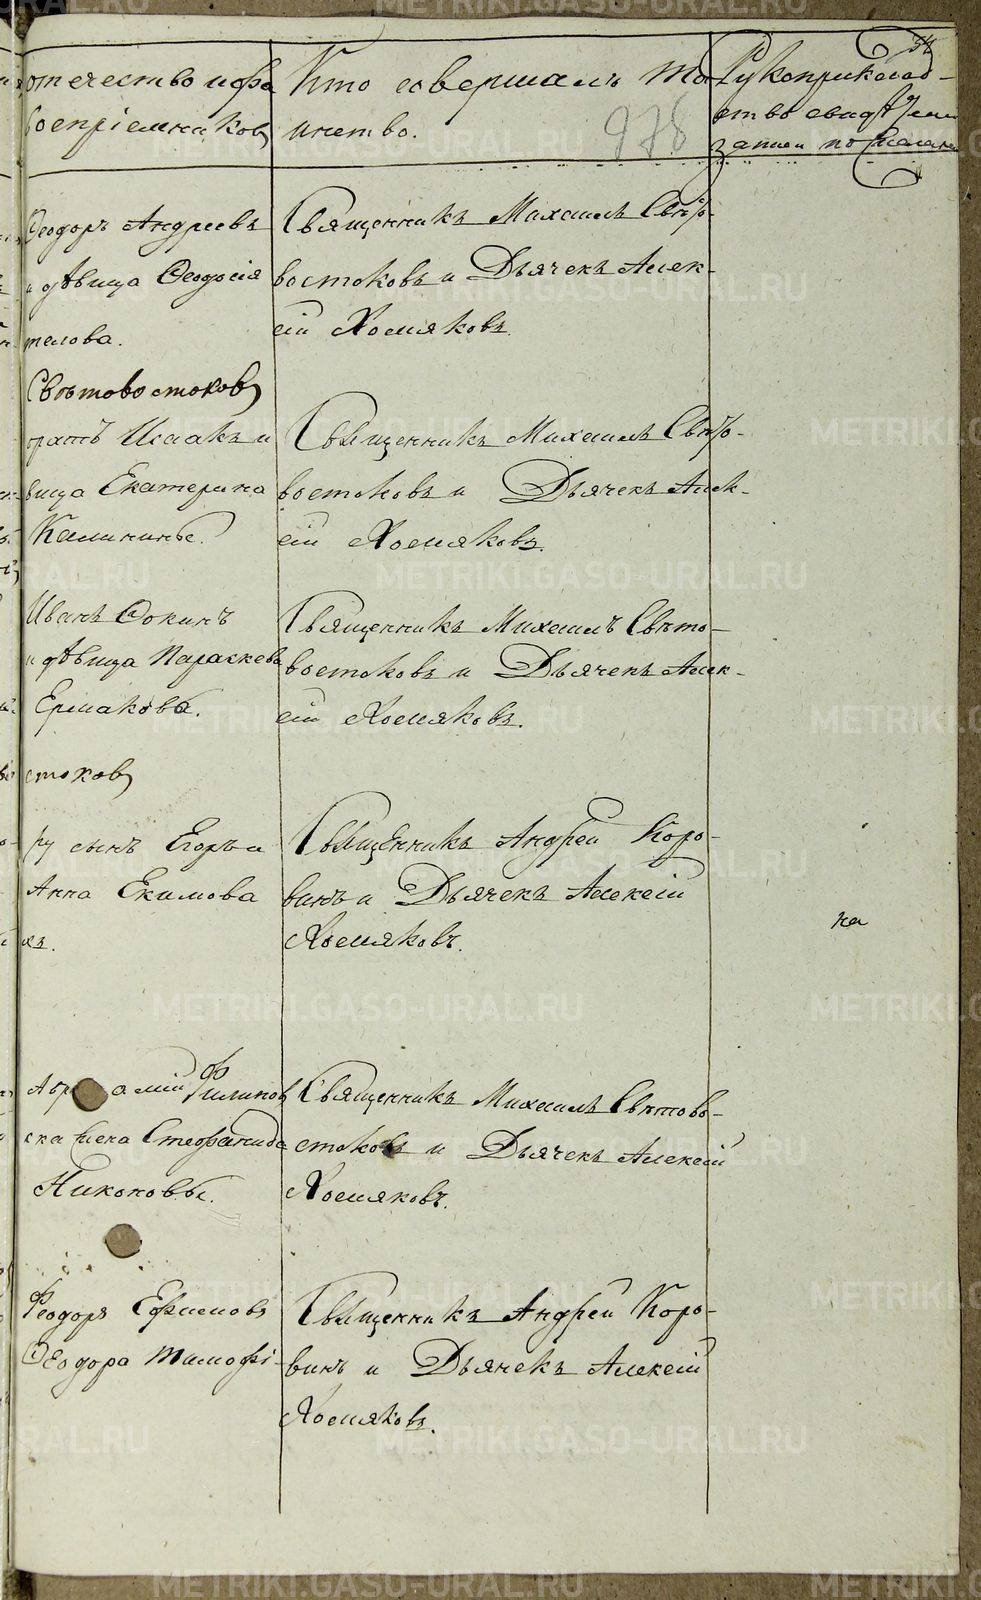 54
отечество и фа
воспріемниковъ
Кто совершалъ та
инство.
978
Рукоприклад-
ство свидѣтелей
записи по желанію
Ѳеодоръ Андреевъ
и дѣвица Ѳеодосія
телова.
Священникъ Михаилъ Свѣто-
востоковъ и Дьячекъ Алек-
сій Хомяковъ.
Свѣтовостоковъ
братъ Исаакъ и
вица Екатерина
Калинины.
Священникъ Михаилъ Свѣто-
востоковъ и Дьячекъ Алек-
сій Хомяковъ.
Иванъ Ѳокинъ
и дѣвица Параскева
Ермакова.
Священникъ Михаилъ Свѣто-
востоковъ и Дьячекъ Алек-
сій Хомяковъ.
стоковъ
ру сынъ Егоръ и
Анна Екимова
хъ.
Священникъ Андрей Коро-
винъ и Дьячекъ Алексій
Хомяковъ.
на
Авр амій Филипов
ска жена Стефанида
Никоновы.
Священникъ Михаилъ Свѣтово-
стоковъ и Дьячекъ Алексій
Хомяковъ.
Феодоръ Ефимовъ
Ѳеодора Тимофѣ-
Священникъ Андрей Коро-
винъ и Дьячекъ Алексій
Хомяковъ.
METRIKI.GASO-URAL.RU